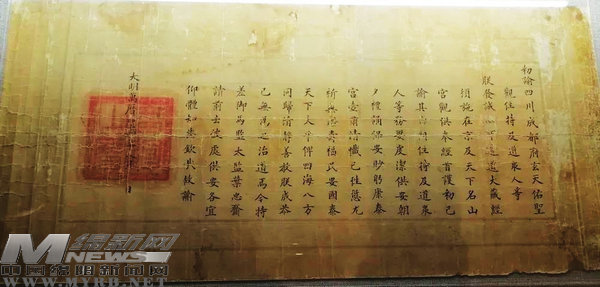 勑諭四川成都府玄天佑聖
觀住持及道衆人等
朕發誠心印造道大藏經
頒施在京及天下名山
宮觀供奉經首護勑已
諭其由爾住持及道衆
人等務要虔潔供安朝
夕禮誦保安眇躬康泰
宮壼肅清懺已往愆尤
祈無疆壽福民安國泰
天下太平俾四海八方
同歸清靜善教朕成恭
己無為之治道焉今特
差御馬監太監葉忠齎
請前去彼處供安各宜
仰體知悉欽哉故諭
大明萬曆 日
M 绵新网
NEWS
中国绵阳新闻网
WWW.MYRB.NET